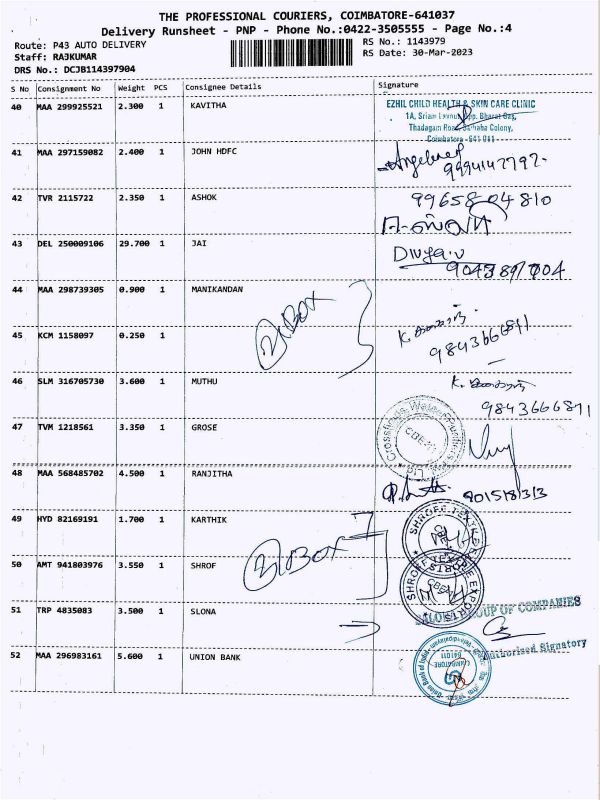 THE PROFESSIONAL COURIERS, COIMBATORE-641037
Delivery Runsheet - PNP - Phone No.:0422-3505555 - Page No.:4
Route: P43 AUTO DELIVERY RS No.: 1143979
Staff: RAJKUMAR RS Date: 30-Mar-2023
DRS No.: DCJB114397904
S No Consignment No Weight PCS Consignee Details Signature
40 MAA 299925521 2.300 1 KAVITHA EZHIL CHILD HEALTH & SKIN CARE CLINIC
1A, Sriam Opp. Bharat Gas,
Thadagam Road, Colony,
Coimbatore - 641 011
41 MAA 297159082 2.400 1 JOHN HDFC
42 TVR 2115722 2.350 1 ASHOK 99658 04810
43 DEL 250009106 29.700 1 JAI Divya.v
9043897004
44 MAA 298739305 0.900 1 MANIKANDAN
45 KCM 1158097 0.250 1 9843666811
46 SLM 316705730 3.600 1 MUTHU 9843666811
47 TVM 1218561 3.350 1 GROSE
48 MAA 568485702 4.500 1 RANJITHA
49 HYD 82169191 1.700 1 KARTHIK
50 AMT 941803976 3.550 1 SHROF
51 TRP 4835083 3.500 1 SLONA GROUP OF COMPANIES
52 MAA 296983161 5.600 1 UNION BANK Authorised Signatory